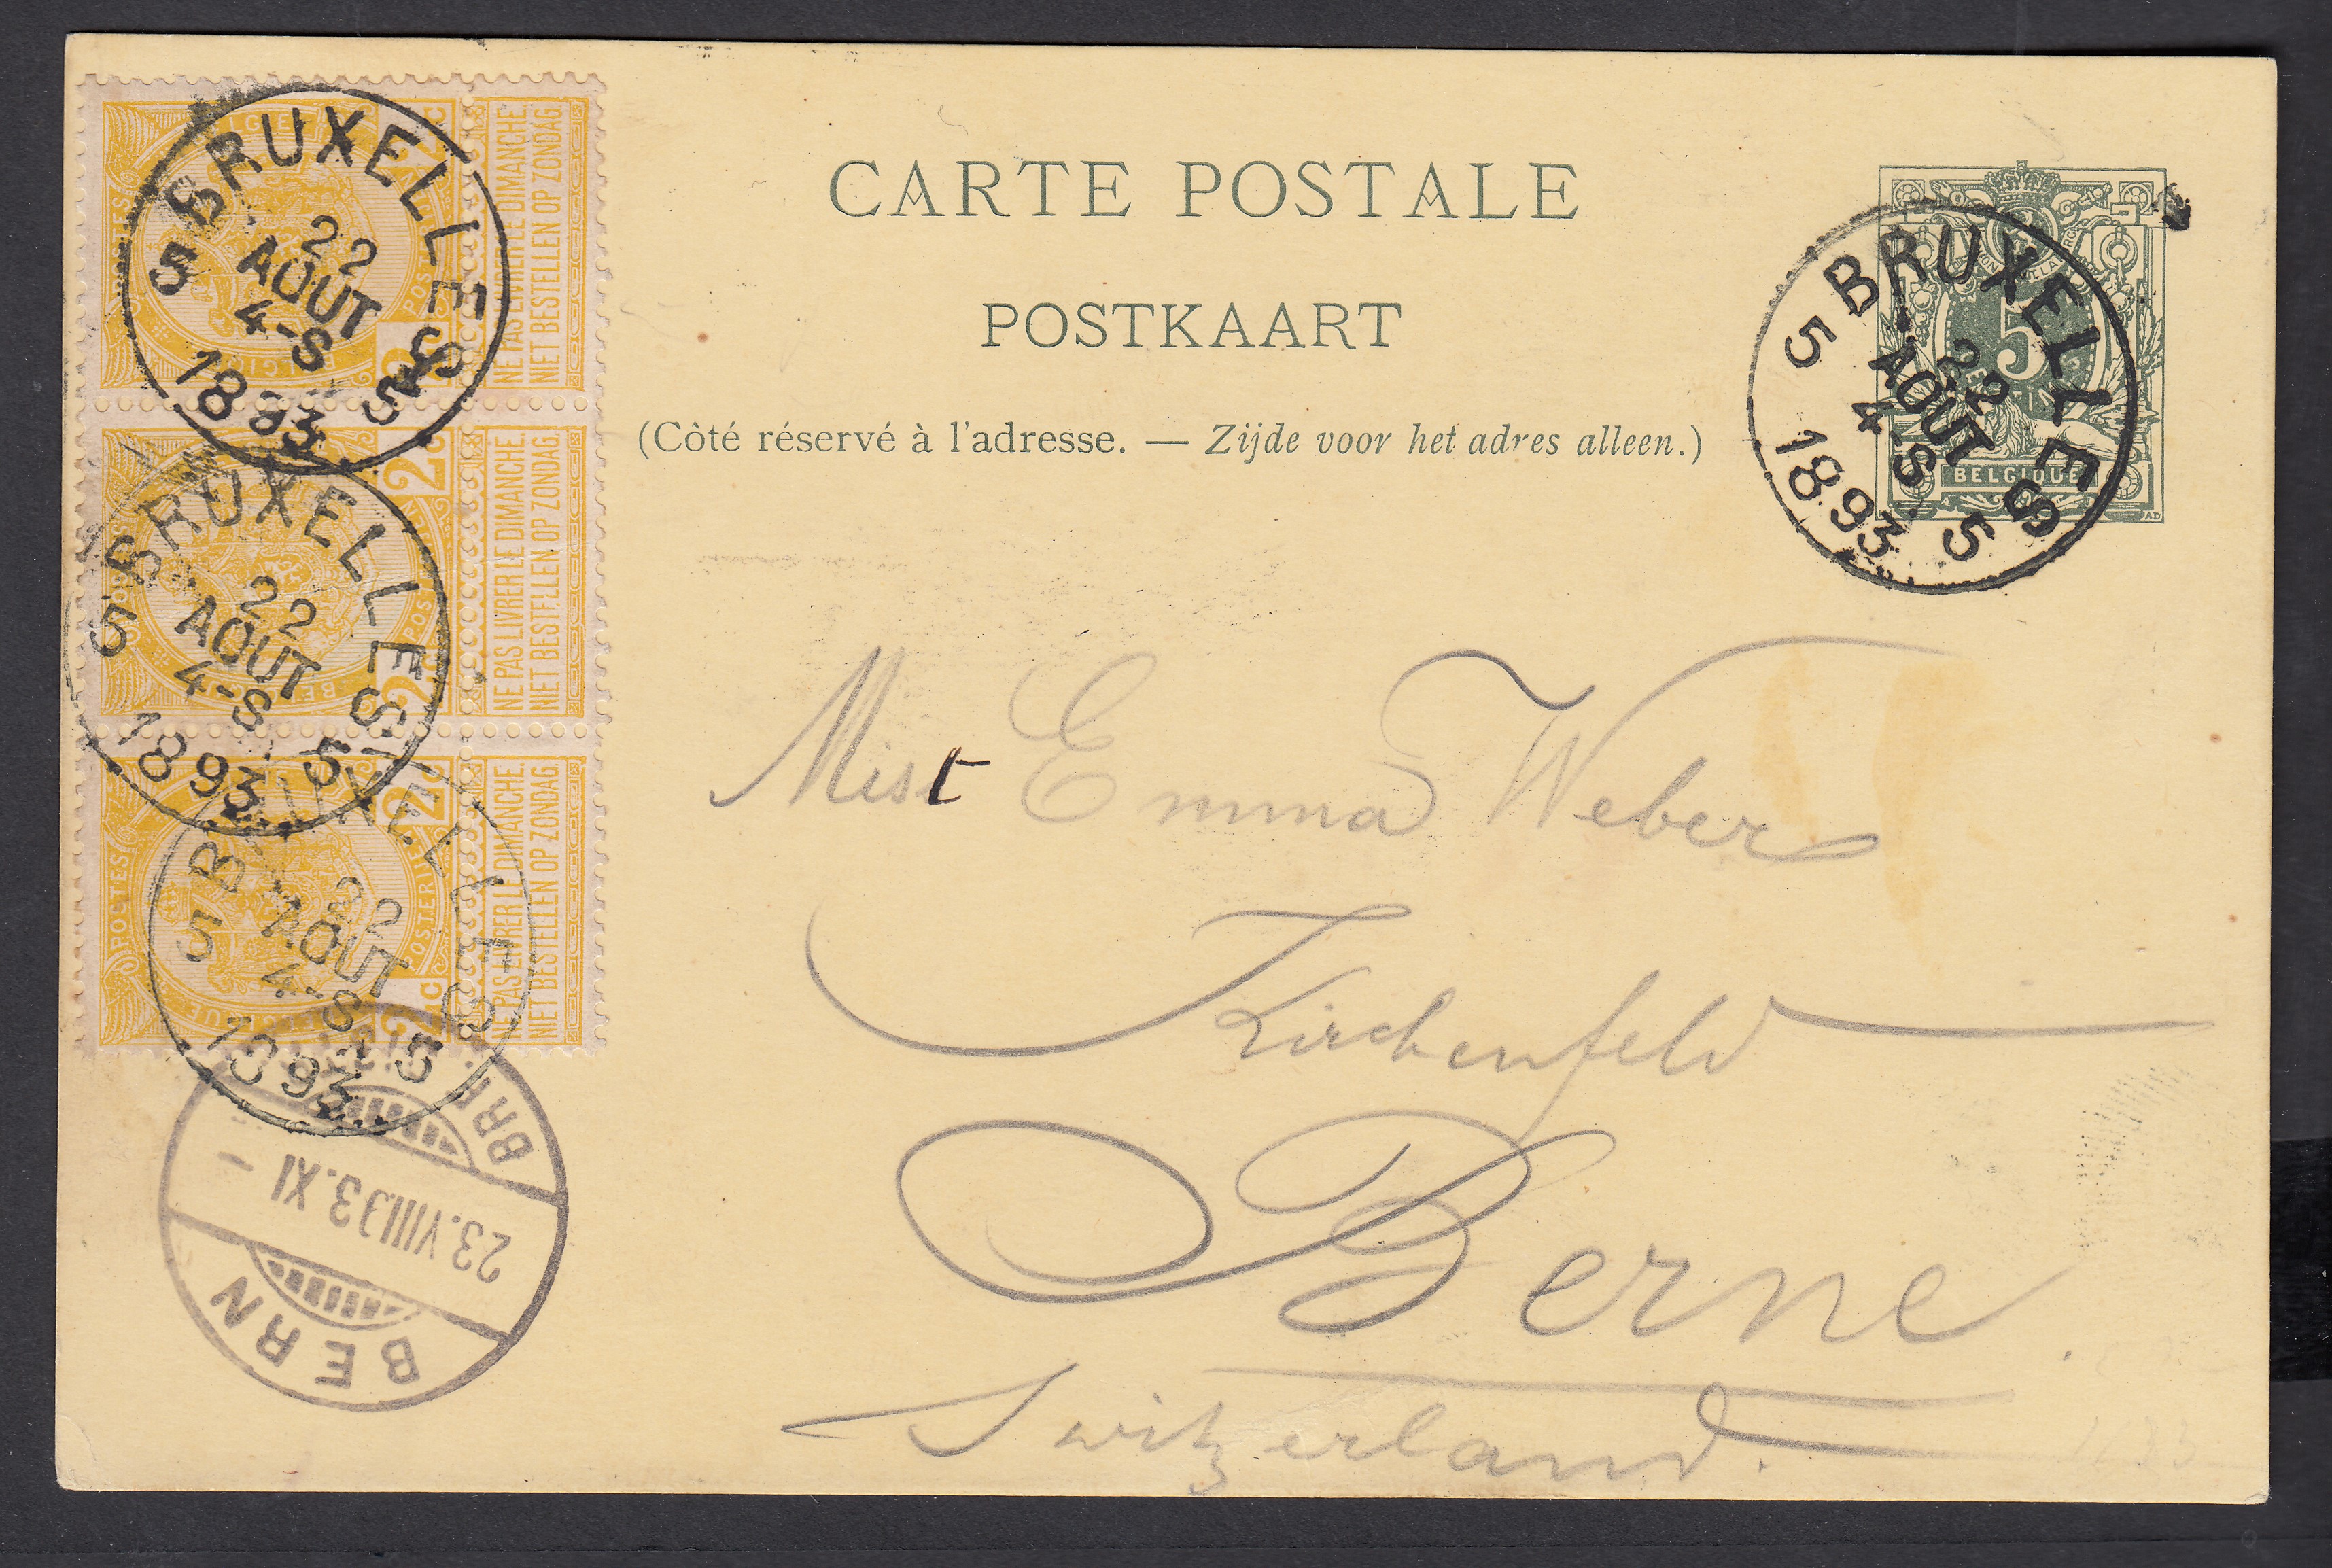 CARTE POSTALE
POSTKAART
(Côté réservé à l'adresse. — Zijde voor het adres alleen.)
5
BELGIQUE
BRUXELLES 5
22
AOUT
4-S
1893
5
2c
NE PAS LIVRER LE DIMANCHE.
NIET BESTELLEN OP ZONDAG.
BRUXELLES 5
22
AOUT
4-S
1893
5
2c
NE PAS LIVRER LE DIMANCHE.
NIET BESTELLEN OP ZONDAG.
BRUXELLES 5
22
AOUT
4-S
1893
5
POSTES
POSTERIJ
2c
NE PAS LIVRER LE DIMANCHE.
NIET BESTELLEN OP ZONDAG.
BRUXELLES 5
22
AOUT
4-S
1893
5
BERN
23.VIII.93.XI -
BRF.
Mist Emma Weber
Kirchenfeld
Berne.
Switzerland.